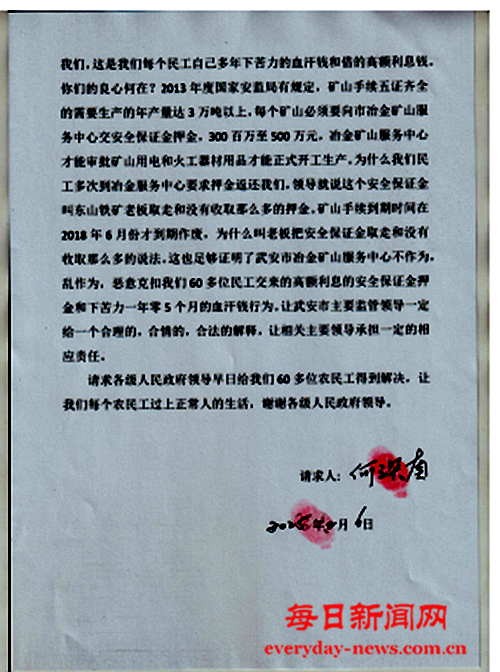 我们，这是我们每个民工自己多年下苦力的血汗钱和借的高额利息钱。
你们的良心何在？2013年度国家安监局有规定，矿山手续五证齐全
的需要生产的年产量达3万吨以上，每个矿山必须要向市冶金矿山服
务中心交安全保证金押金，300百万至500万元，冶金矿山服务中心
才能审批矿山用电和火工器材用品才能正式开工生产。为什么我们民
工多次到冶金服务中心要求押金返还我们，领导就说这个安全保证金
叫东山铁矿老板取走和没有收取那么多的押金。矿山手续到期时间在
2018年6月份才到期作废，为什么叫老板把安全保证金取走和没有
收取那么多的说法。这也足够证明了武安市冶金矿山服务中心不作为，
乱作为，恶意克扣我们60多位民工交来的高额利息的安全保证金押
金和下苦力一年零5个月的血汗钱行为。让武安市主要监管领导一定
给一个合理的，合情的，合法的解释，让相关主要领导承担一定的相
应责任。
请求各级人民政府领导早日给我们60多位农民工得到解决，让
我们每个农民工过上正常人的生活，谢谢各级人民政府领导。
请求人：何
2025年 月6日
每日新闻网
everyday-news.com.cn